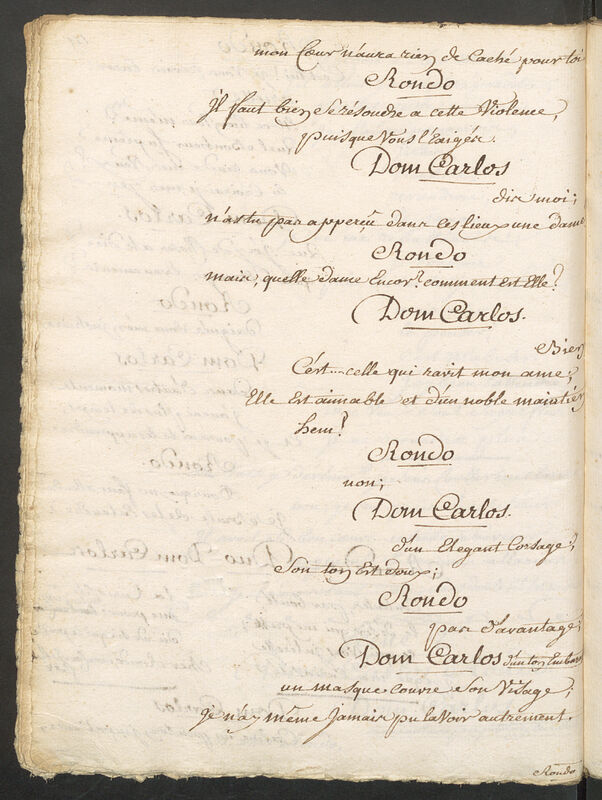 mon Cœur n'aura rien de Caché pour toi
Rondo
Il faut bien se résoudre a cette Violence,
puisque Vous l'Exigés.
Dom Carlos
dis moi;
n'as tu pas apperçû dans ces lieux une dame
Rondo
mais, quelle dame Encor? comment est Elle?
Dom Carlos.
Bien
C'est... celle qui ravit mon ame;
Elle Est aimable et d'un noble maintien
hem?
Rondo
non;
Dom Carlos.
d'un Elegant Corsage;
Son ton Est doux;
Rondo
pas d'avantage;
Dom Carlos
un masque couvre son Visage;
Je n'ay même Jamais pu la Voir autrement.
Rondo